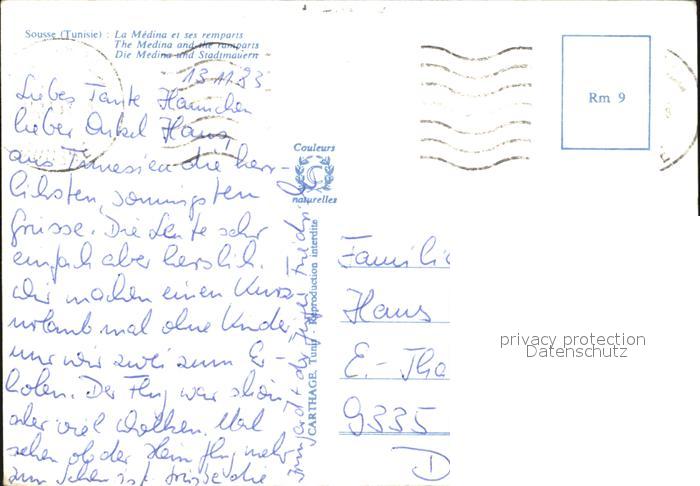 Sousse (Tunisie) : La Médina et ses remparts
The Medina and the ramparts
Die Medina und Stadtmauern
13.11.83
Liebes Tante Hannchen
lieber Onkel Hans,
aus Tunesien die herr-
lichsten, sonnigsten
Grüsse. Die Leute sehr
einfach aber herzlich.
Wir machen einen Kurz-
urlaub mal ohne Kinder
nur wir zwei zum Er-
holen. Der Flug war schön
aber viel Wolken. Mal
sehen ob der Heimflug mehr
zum sehen ist. Grüsse die
Couleurs
naturelles
CARTHAGE, Tunis - Reproduction interdite
Rm 9
Familie
Hans
E.-Tha
9335
D
privacy protection
Datenschutz